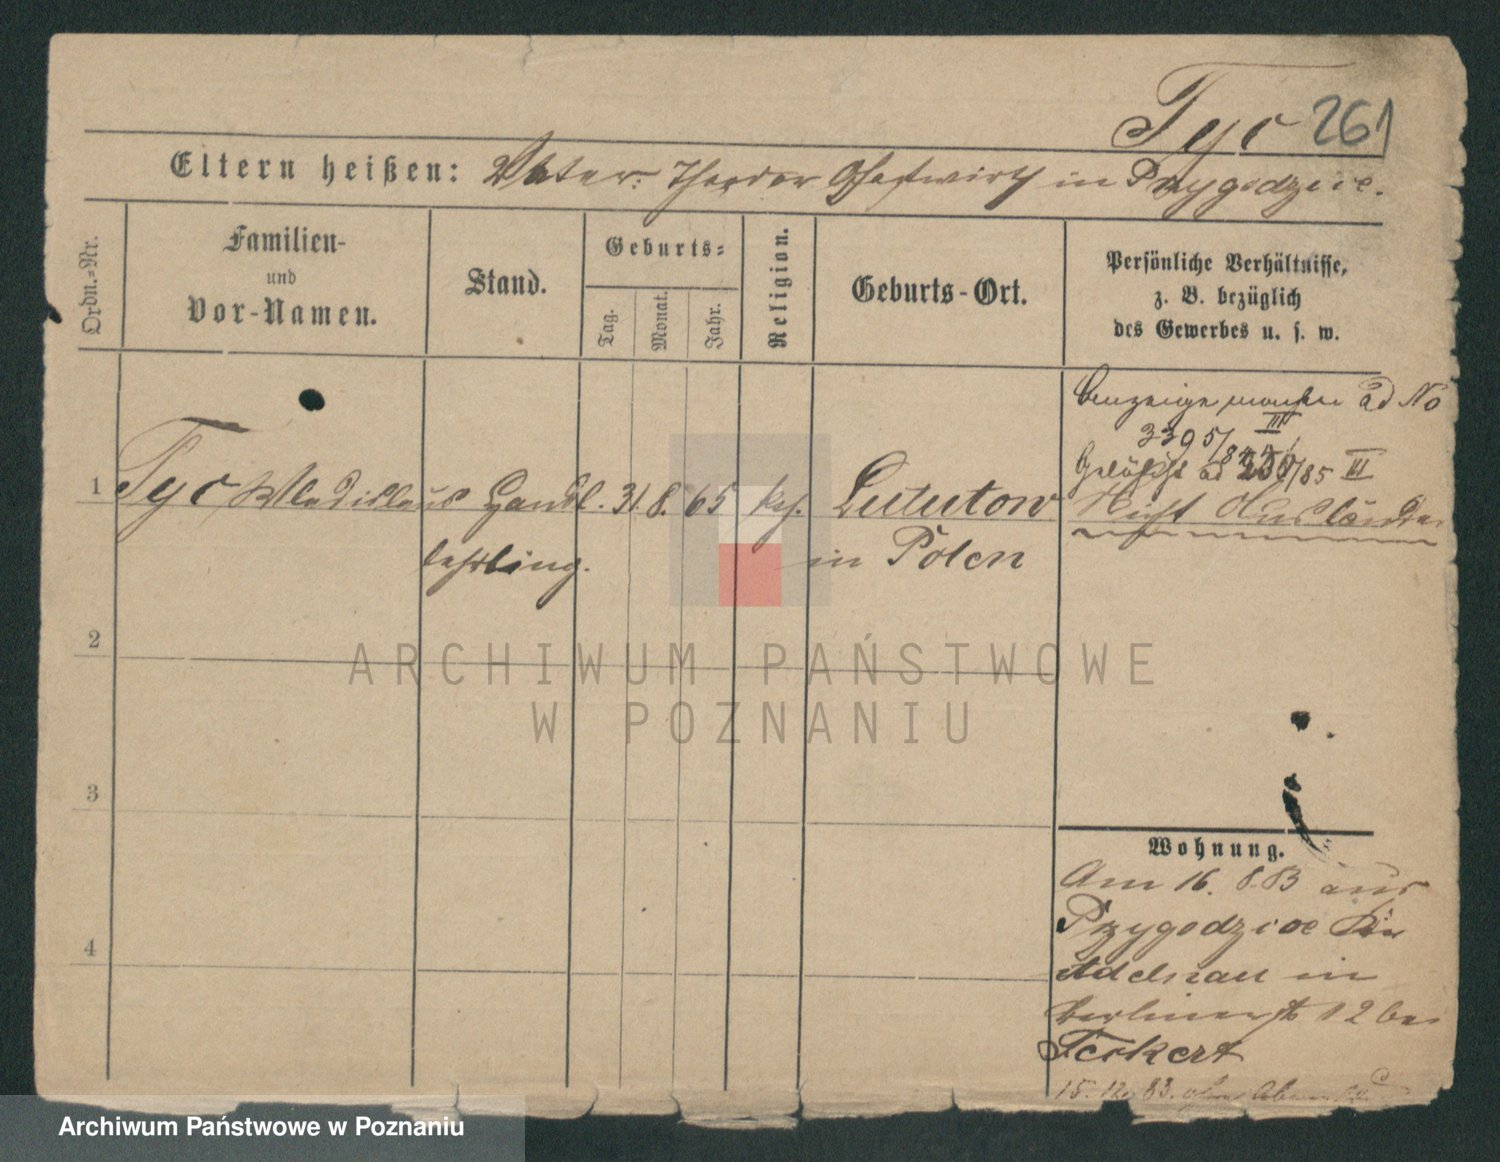 Tyc 261
Eltern heißen: Vater: Theodor Gastwirth in Przygodzice.
Ordn.-Nr.
Familien-
und
Vor-Namen.
Stand.
Geburts-
Tag.
Monat.
Jahr.
Religion.
Geburts-Ort.
Persönliche Verhältnisse,
z. B. bezüglich
des Gewerbes u. s. w.
ad No
III
3395/84
Gelöscht ad /85 III
1 Tyc Wladislaus Handl. 31. 8. 65 kth. Lututow Nicht Ausländer
lehrling. in Polen
2
3
4
Wohnung.
Am 16. 8. 83 aus
Przygodzice Kr
Adelnau in
Berlinerstr 12 bei
Teckert
15. 12. 83. ohne
ARCHIWUM PAŃSTWOWE
W POZNANIU
Archiwum Państwowe w Poznaniu